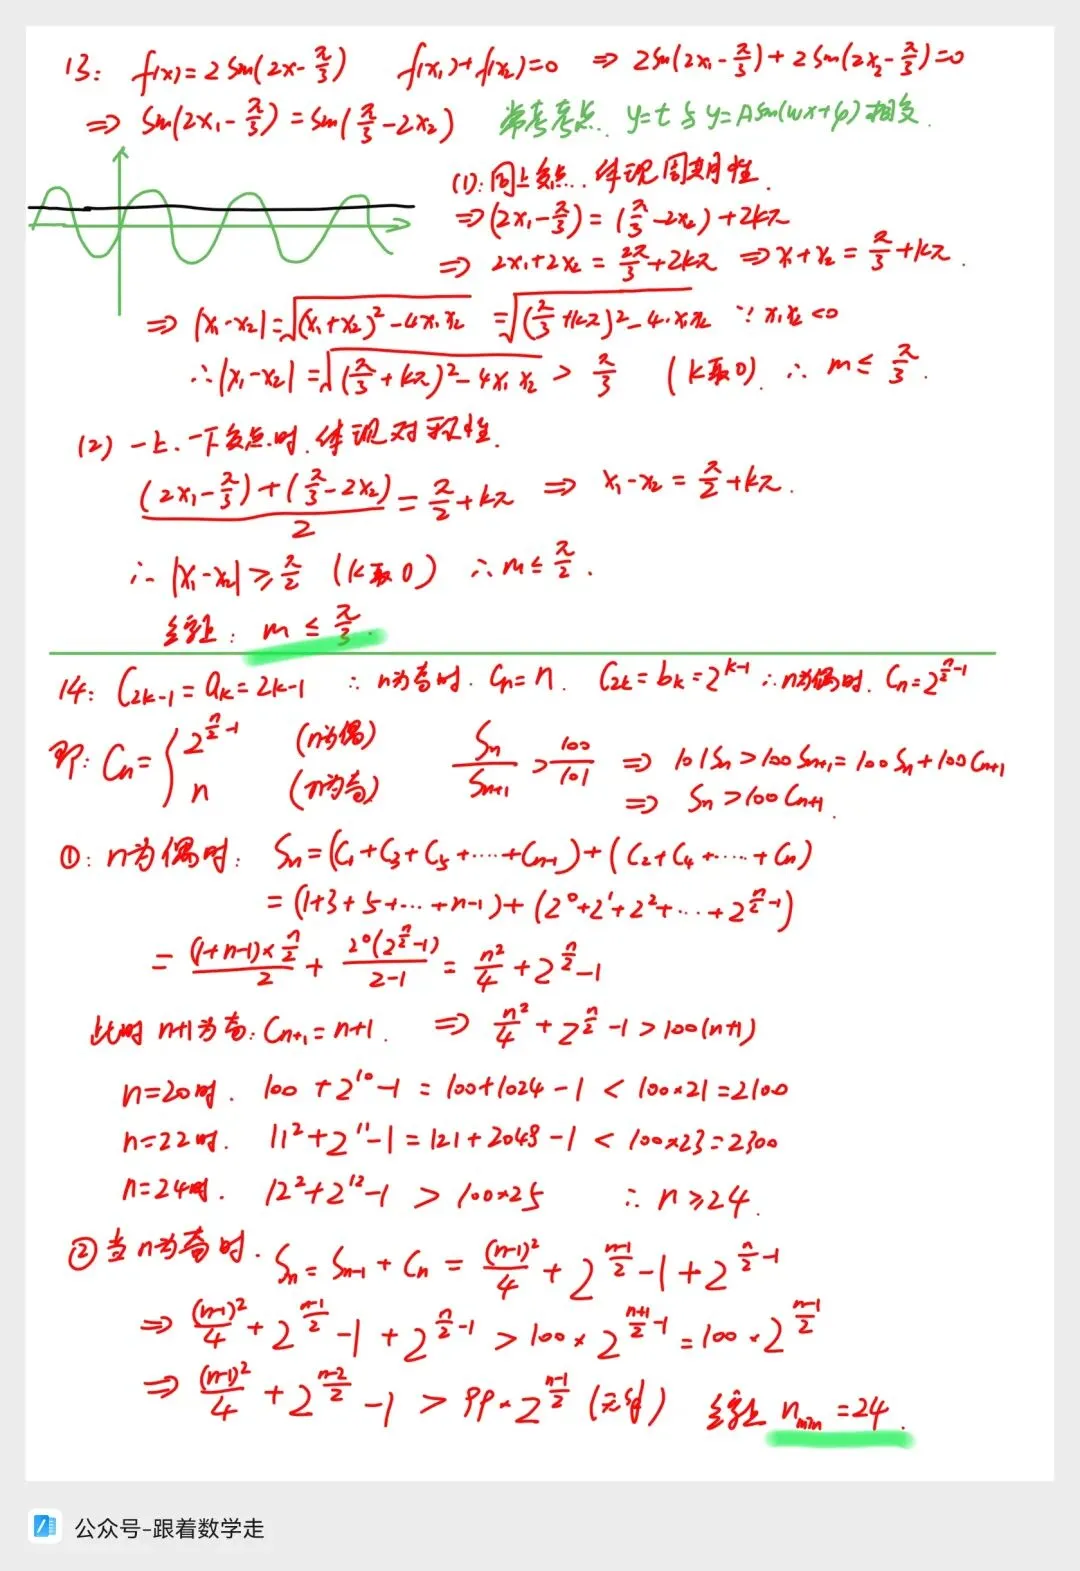 13: f(x)=2sin(2x-π/3) f(x₁)+f(x₂)=0 ⇒ 2sin(2x₁-π/3)+2sin(2x₂-π/3)=0
⇒ sin(2x₁-π/3)=sin(π/3-2x₂) 常考考点. y=t与y=Asin(wx+φ)相交.
(1): 同上交点. 体现周期性.
⇒(2x₁-π/3)=(π/3-2x₂)+2kπ
⇒ 2x₁+2x₂=2π/3+2kπ ⇒x₁+x₂=π/3+kπ.
⇒ |x₁-x₂|=√((x₁+x₂)²-4x₁x₂) =√((π/3+kπ)²-4·x₁x₂) ∵x₁x₂<0
∴|x₁-x₂|=√((π/3+kπ)²-4x₁x₂) > π/3 (k取0) ∴ m≤π/3.
(2) 一上.一下交点时.体现对称性.
((2x₁-π/3)+(π/3-2x₂))/2=π/2+kπ ⇒ x₁-x₂=π/2+kπ.
∴|x₁-x₂|≥π/2 (k取0) ∴m≤π/2.
综上: m≤π/3.
14: C₂ₖ₋₁=aₖ=2k-1 ∴n为奇时.Cₙ=n. C₂ₖ=bₖ=2^(k-1) ∴n为偶时.Cₙ=2^(n/2-1)
即: Cₙ={2^(n/2-1) (n为偶) Sₙ/Sₙ₊₁>100/101 ⇒ 101Sₙ>100Sₙ₊₁=100Sₙ+100Cₙ₊₁
n (n为奇) ⇒ Sₙ>100Cₙ₊₁.
①: n为偶时: Sₙ=(C₁+C₃+C₅+……+Cₙ₋₁)+(C₂+C₄+……+Cₙ)
=(1+3+5+…+n-1)+(2⁰+2¹+2²+…+2^(n/2-1))
=((1+n-1)×n/2)/2+(2⁰(2^(n/2)-1))/(2-1)=n²/4+2^(n/2)-1
此时 n+1为奇: Cₙ₊₁=n+1. ⇒ n²/4+2^(n/2)-1>100(n+1)
n=20时. 100+2¹⁰-1=100+1024-1<100×21=2100
n=22时. 11²+2¹¹-1=121+2048-1<100×23=2300
n=24时. 12²+2¹²-1>100×25 ∴ n≥24.
②当n为奇时. Sₙ=Sₙ₋₁+Cₙ=(n-1)²/4+2^((n-1)/2)-1+2^(n/2-1)
⇒ (n-1)²/4+2^((n-1)/2)-1+2^(n/2-1)>100×2^((n+1)/2-1)=100×2^((n-1)/2)
⇒ (n-1)²/4+2^((n-2)/2)-1>99×2^((n-1)/2) (无解) 综上 nmin=24.
公众号-跟着数学走